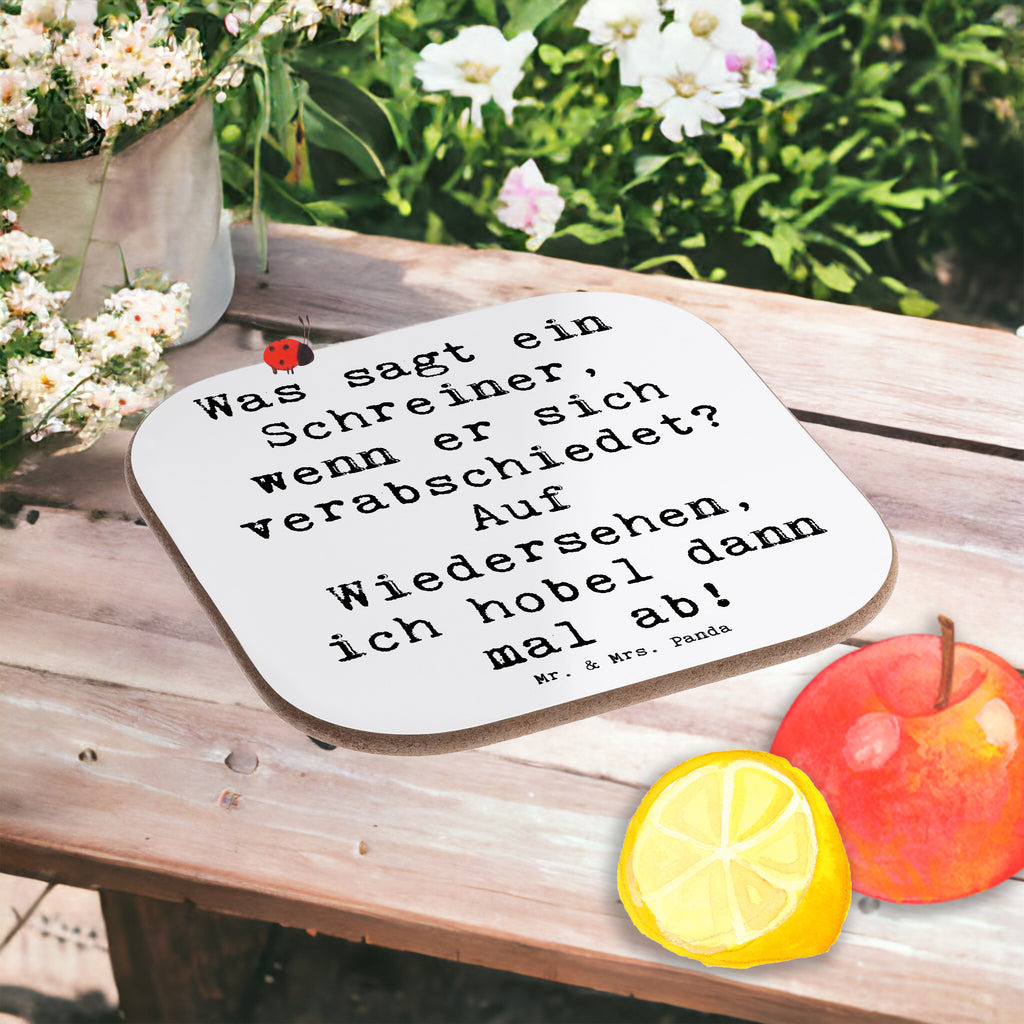 Was sagt ein
Schreiner,
wenn er sich
verabschiedet?
Auf
Wiedersehen,
ich hobel dann
mal ab!
Mr. & Mrs. Panda